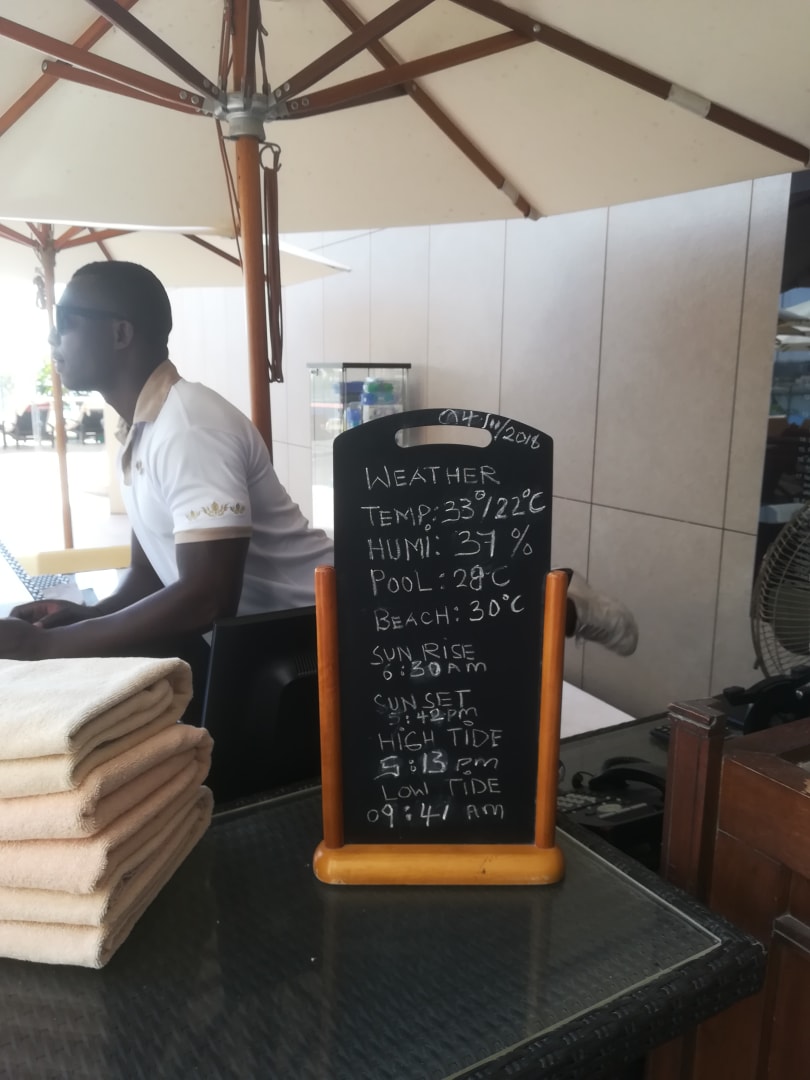 04/11/2018
WEATHER
TEMP: 33°/22°C
HUMI: 37 %
POOL: 28°C
BEACH: 30°C
SUN RISE
6:30AM
SUN SET
5:42PM
HIGH TIDE
5:13 PM
LOW TIDE
09:41 AM